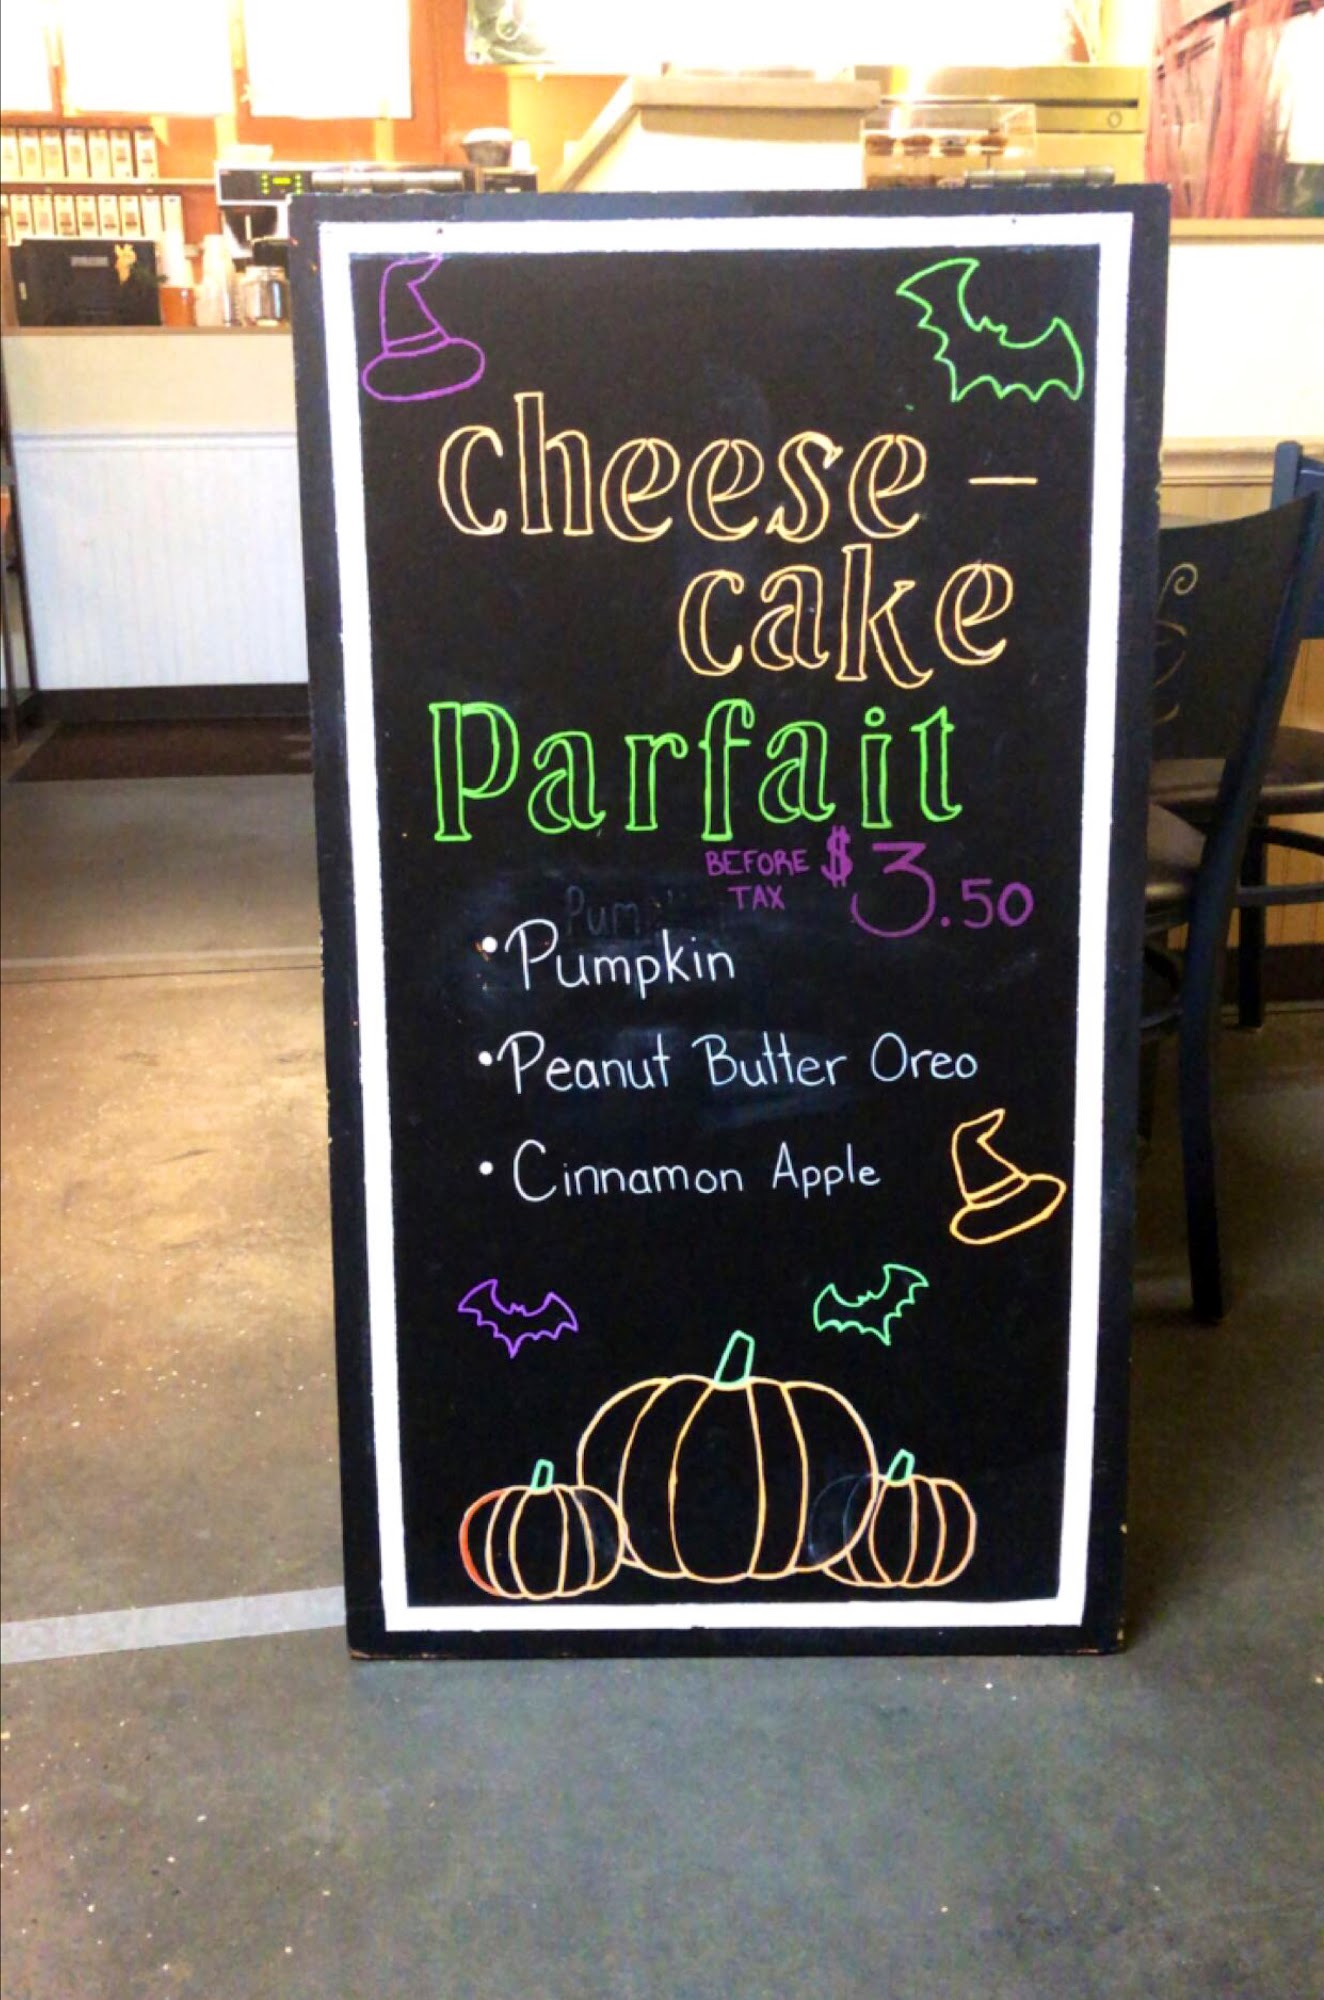 cheese-
cake
Parfait
BEFORE TAX $3.50
Pum
• Pumpkin
• Peanut Butter Oreo
• Cinnamon Apple